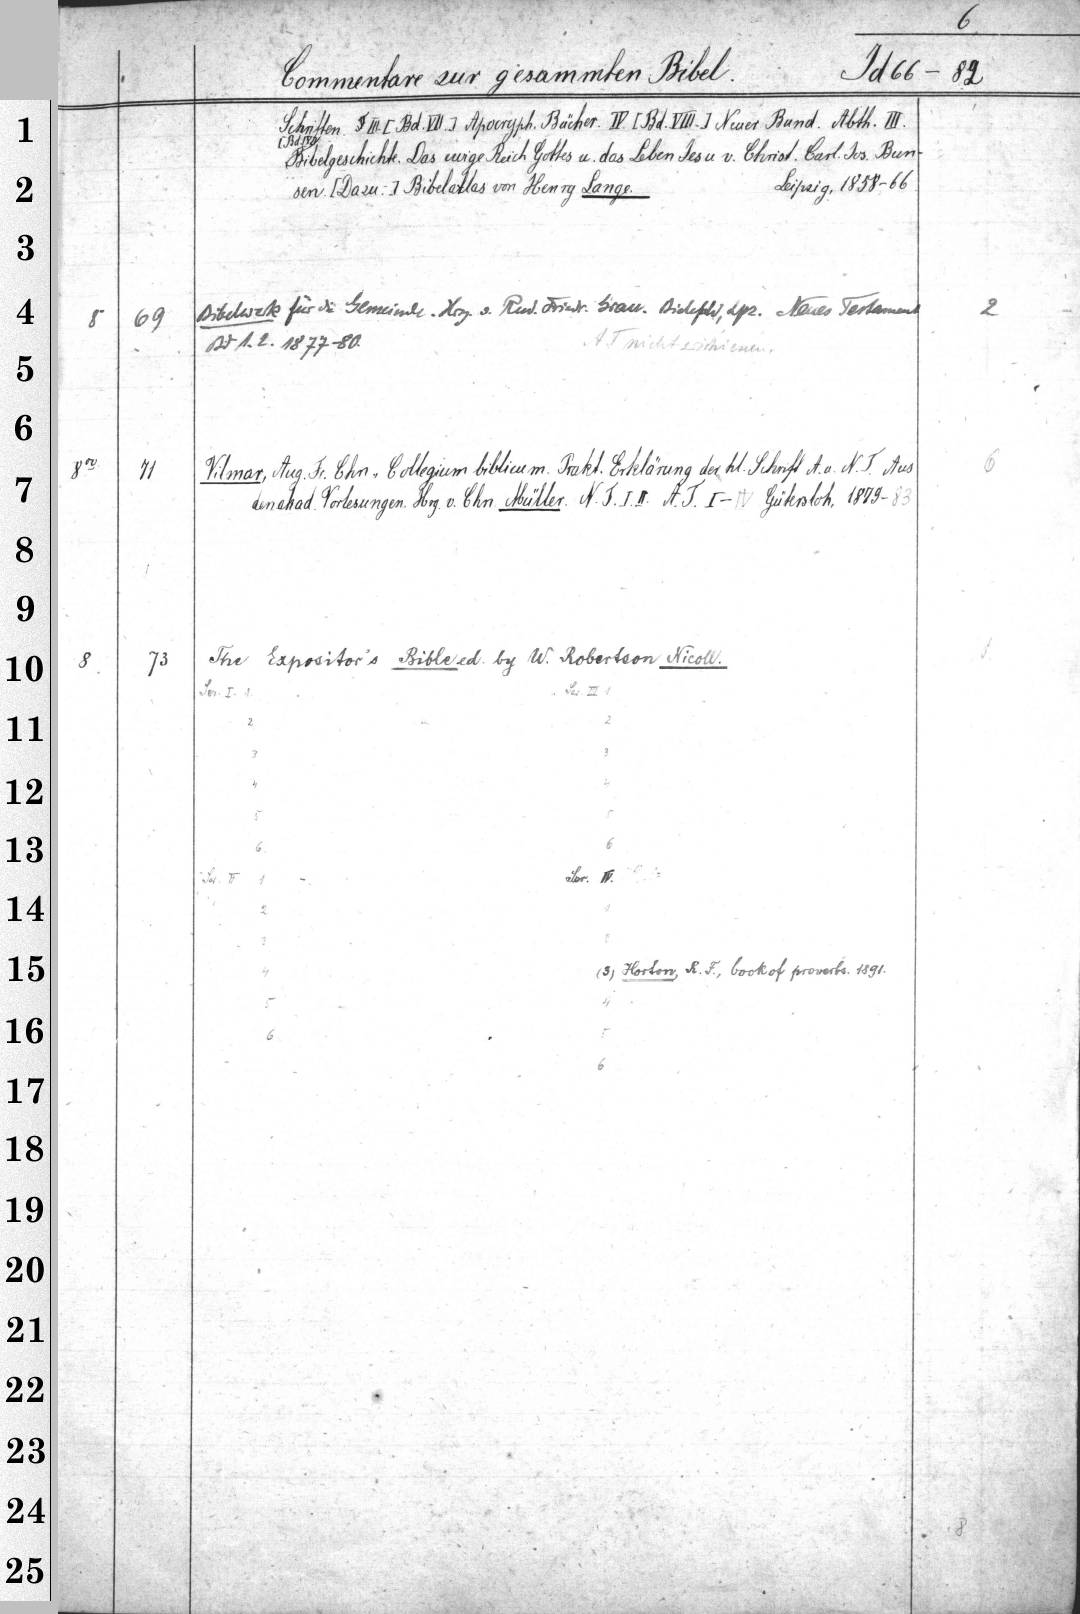 6
Commentare zur gesammten Bibel. Id 66 - 82
1 Schriften III [Bd. VII.] Apocryph. Bücher. IV. [Bd. VIII.] Neuer Bund. Abth. III.
[Bd. IX]
Bibelgeschichte. Das ewige Reich Gottes u. das Leben Jesu v. Christ. Carl. Jos. Bun-
2 sen. [Dazu:] Bibelatlas von Henry Lange. Leipzig, 1858-66
3
4 8 69 Bibelwerk für die Gemeinde. Hrg. v. Rud. Friedr. Grau. Bielefeld, Lpz. Neues Testament 2
Bd 1. 2. 1877-80. A T nicht erschienen.
5
6
8vo 71 Vilmar, Aug. Fr. Chn., Collegium biblicum. Prakt. Erklärung der hl. Schrift A. u. N. T. Aus 6
7 den akad. Vorlesungen. Hrg. v. Chn Müller. N. T. I. II. A. T. I-IV Gütersloh, 1879-83
8
9
10 8 73 The Expositor's Bible ed. by W. Robertson Nicoll. 1
Ser. I. 1. Ser. III 1
11 2 2
3 3
12 4 4
5 5
13 6 6
Ser. II 1 Ser. IV.
14 2 1
3 2
15 4 (3) Horton, R. F., book of proverbs. 1891.
5 4
16 6 5
6
17
18
19
20
21
22
23
24 8
25